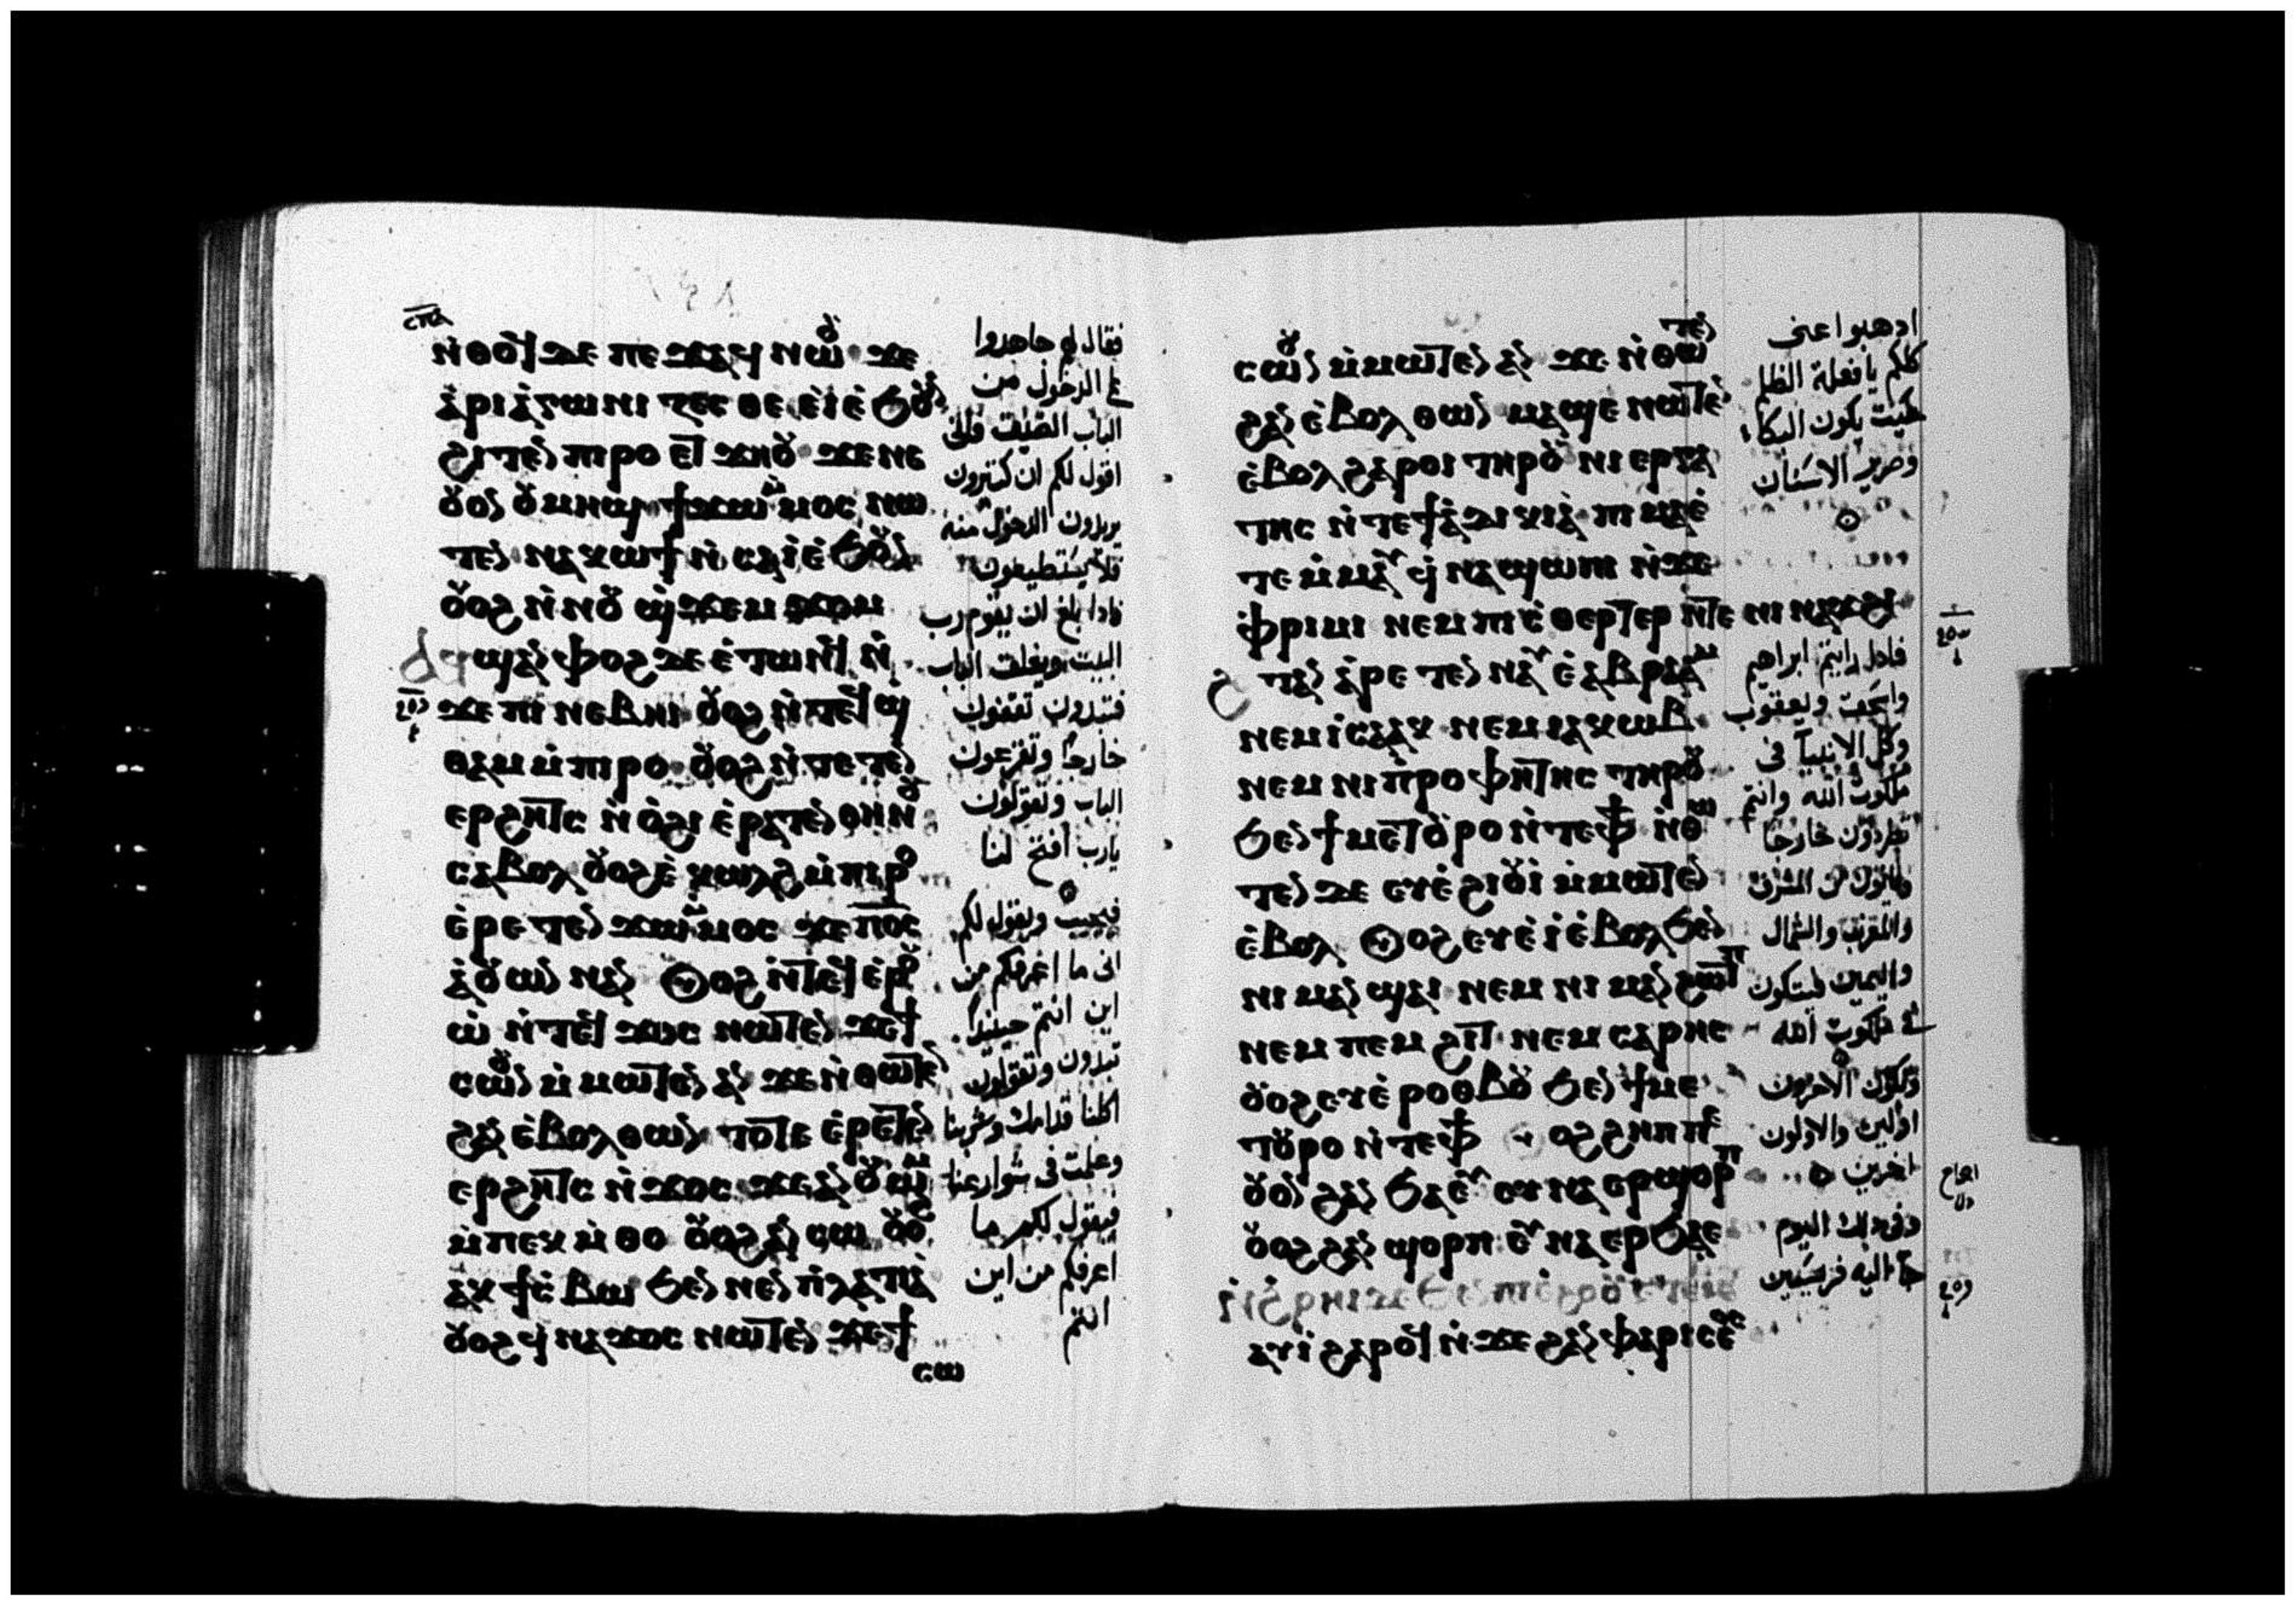 ⲥⲡⲁ
ⲛ̀ⲑⲟϥ ⲇⲉ ⲡⲉϫⲁϥ ⲛⲱⲟⲩ ϫⲉ
ⲁ̀ⲣⲓⲁ̀ⲅⲱⲛⲓ ⲍⲉⲥⲑⲉ ⲉ̀ⲓ ⲉ̀ϧⲟⲩⲛ
ϩⲓⲧⲉⲛ ⲡⲓⲣⲟ ⲉⲧϫⲏⲟⲩ ϫⲉ ⲛⲉ
ⲟⲩⲟⲛ ⲟⲩⲙⲏϣ ϯϫⲱ ⲙ̀ⲙⲟⲥ ⲛⲱ
ⲧⲉⲛ ⲛⲁⲕⲱϯ ⲛ̀ⲥⲁ ⲓ̀ ⲉ̀ϧⲟⲩⲛ
ⲟⲩⲟϩ ⲛ̀ⲛⲟⲩϣ̀ϫⲉⲙϫⲟⲙ
ϣⲁⲛ ⲫⲟϩ ⲇⲉ ⲉ̀ⲧⲱⲛϥ ⲛ̀
ϫⲉ ⲡⲓⲛⲉⲃⲏⲓ ⲟⲩⲟϩ ⲛ̀ⲧⲉϥϣ
ⲑⲁⲙ ⲙ̀ⲡⲓⲣⲟ ⲟⲩⲟϩ ⲛ̀ⲧⲉⲧⲉⲛ
ⲉⲣϩⲏⲧⲥ ⲛ̀ⲟ̀ϩⲓ ⲉ̀ⲣⲁⲧⲉⲛ ⲑⲏⲛⲟⲩ
ⲥⲁⲃⲟⲗ ⲟⲩⲟϩ ⲉ̀ⲕⲱⲗϩ ⲙ̀ⲡⲓⲣⲟ
ⲉ̀ⲣⲉⲧⲉⲛ ϫⲱ ⲙ̀ⲙⲟⲥ ϫⲉ ⲡⲟ̅ⲥ̅
ⲁ̀ⲟⲩⲱⲛ ⲛⲁⲛ ⲟⲩⲟϩ ⲛ̀ⲧⲉϥⲉⲣⲟⲩ
ⲱ̀ ⲛ̀ⲧⲉϥϫⲟⲥ ⲛⲱⲧⲉⲛ ϫⲉ ϯ
ⲥⲱⲟⲩⲛ ⲙ̀ⲙⲱⲧⲉⲛ ⲁⲛ ϫⲉ ⲛ̀ⲑⲱⲧⲉⲛ
ϩⲁⲛ ⲉ̀ⲃⲟⲗ ⲑⲱⲛ ⲧⲟⲧⲉ ⲉ̀ⲣⲉⲧⲉⲛ
ⲉⲣϩⲏⲧⲥ ⲛ̀ϫⲟⲥ ϫⲉ ⲁⲛⲟⲩⲱⲙ
ⲙ̀ⲡⲉⲕⲙ̀ⲑⲟ ⲟⲩⲟϩ ⲁⲛⲥⲱ ⲟⲩⲟϩ
ⲁⲕϯⲥ̀ⲃⲱ ϧⲉⲛ ⲛⲉⲛⲡ̀ⲗⲁⲧⲓⲁ̀
ⲟⲩⲟϩ ϥ̀ⲛⲁϫⲟⲥ ⲛⲱⲧⲉⲛ ϫⲉ ϯ
ⲥⲱ
فقال لهم جاهدوا
على الدخول من
الباب الضيق فانى
اقول لكم ان كثيرون
يريدون الدخول منه
فلا يستطيعون
فاذا بلغ ان يقوم رب
البيت ويغلق الباب
فتبدون تقفون
خارجا وتقرعون
الباب وتقولون
يارب افتح لنا
فيجيب ويقول لكم
انى ما اعرفكم من
اين انتم حينيذ
تبدون وتقولون
اكلنا قدامك وشربنا
وعلمت فى شوارعنا
فيقول لكم ما
اعرفكم من اين
انتم
ⲥⲱⲟⲩⲛ ⲙ̀ⲙⲱⲧⲉⲛ ⲁⲛ ϫⲉ ⲛ̀ⲑⲱⲧⲉⲛ
ϩⲁⲛ ⲉ̀ⲃⲟⲗ ⲑⲱⲛ ⲙⲁϣⲉ ⲛⲱⲧⲉⲛ
ⲉ̀ⲃⲟⲗ ϩⲁⲣⲟⲓ ⲧⲏⲣⲟⲩ ⲛⲓⲉⲣⲅⲁ
ⲧⲏⲥ ⲛ̀ⲧⲉ ϯⲁ̀ⲇⲓⲕⲓⲁ̀ ⲡⲓⲙⲁ ⲉ̀
ⲧⲉ ⲙ̀ⲙⲁⲩ ϥ̀ⲛⲁϣⲱⲡⲓ ⲛ̀ϫⲉ
ⲫ̀ⲣⲓⲙⲓ ⲛⲉⲙ ⲡⲓⲥ̀ⲑⲉⲣⲧⲉⲣ ⲛ̀ⲧⲉ ⲛⲓⲛⲁϫϩⲓ
ϩⲟⲧⲁⲛ ⲁ̀ⲣⲉⲧⲉⲛⲛⲁⲩ ⲉ̀ⲁⲃⲣⲁⲁⲙ
ⲛⲉⲙ ⲓⲥⲁⲁⲕ ⲛⲉⲙ ⲓⲁⲕⲱⲃ
ⲛⲉⲙ ⲛⲓⲡ̀ⲣⲟⲫⲏⲧⲏⲥ ⲧⲏⲣⲟⲩ
ϧⲉⲛ ϯⲙⲉⲧⲟⲩⲣⲟ ⲛ̀ⲧⲉ ⲫϯ ⲛ̀ⲑⲱ
ⲧⲉⲛ ⲇⲉ ⲉⲩⲉ̀ϩⲓⲟⲩⲓ̀ ⲙ̀ⲙⲱⲧⲉⲛ
ⲉ̀ⲃⲟⲗ ⲟⲩⲟϩ ⲉⲩⲉ̀ⲓ̀ ⲉ̀ⲃⲟⲗ ϧⲉⲛ
ⲛⲓⲙⲁⲛϣⲁⲓ ⲛⲉⲙ ⲛⲓⲙⲁⲛϩⲱⲧⲡ
ⲛⲉⲙ ⲡⲉⲙϩⲓⲧ ⲛⲉⲙ ⲥⲁⲣⲏⲥ
ⲟⲩⲟϩ ⲉⲩⲉ̀ⲣⲟⲑⲃⲟⲩ ϧⲉⲛ ϯⲙⲉ
ⲧⲟⲩⲣⲟ ⲛ̀ⲧⲉ ⲫϯ ⲟⲩⲟϩ ϩⲏⲡⲡⲉ
ⲟⲩⲟⲛ ϩⲁⲛϧⲁⲉⲩ ⲉⲩⲛⲁⲉⲣϣⲟⲣⲡ
ⲟⲩⲟϩ ϩⲁⲛϣⲟⲣⲡ ⲉⲩⲛⲁⲉⲣϧⲁⲉ
ⲁⲩⲓ̀ ϩⲁⲣⲟϥ ⲛ̀ϫⲉ ϩⲁⲛⲫⲁⲣⲓⲥⲉⲟⲥ
اذهبوا عنى
كلكم يا فعلة الظلم
حيث يكون البكاء
وصرير الاسنان
فاذا رايتم ابراهيم
واسحق ويعقوب
وكل الانبيا فى
ملكوت الله وانتم
تطردون خارجا
وياتون من المشرق
والمغرب والشمال
واليمين فيتكون
فى ملكوت الله
وتكون الاخرون
اولين والاولون
اخرين
وفى ذلك اليوم
جا اليه فريسيين